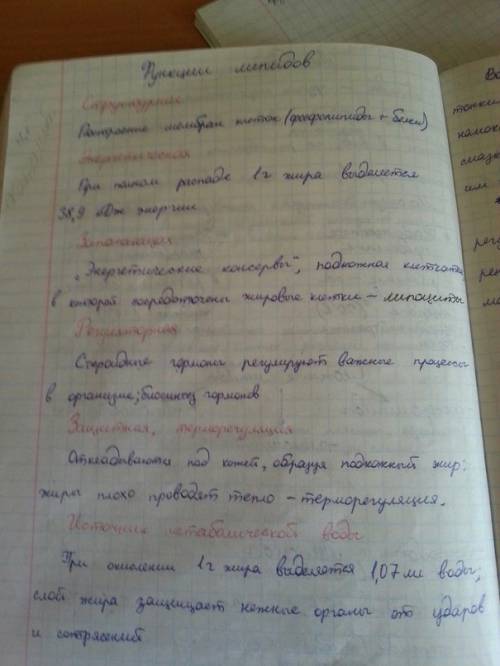 Функции липидов
Структурная
Построение мембран клеток (фосфолипиды + белки)
Энергетическая
При полном распаде 1г жира выделяется
38,9 кДж энергии
Запасающая
„Энергетические консервы", подкожная клетчатка,
в которой сосредоточены жировые клетки – липоциты
Регуляторная
Стероидные гормоны регулируют важные процессы
в организме; биосинтез гормонов
Защитная, терморегуляция
Откладываются под кожей, образуя подкожный жир;
жиры плохо проводят тепло – терморегуляция.
Источник метаболической воды
При окислении 1г жира выделяется 1,07 мл воды;
слой жира защищает нежные органы от ударов
и сотрясений
Во
смазк
им
регу